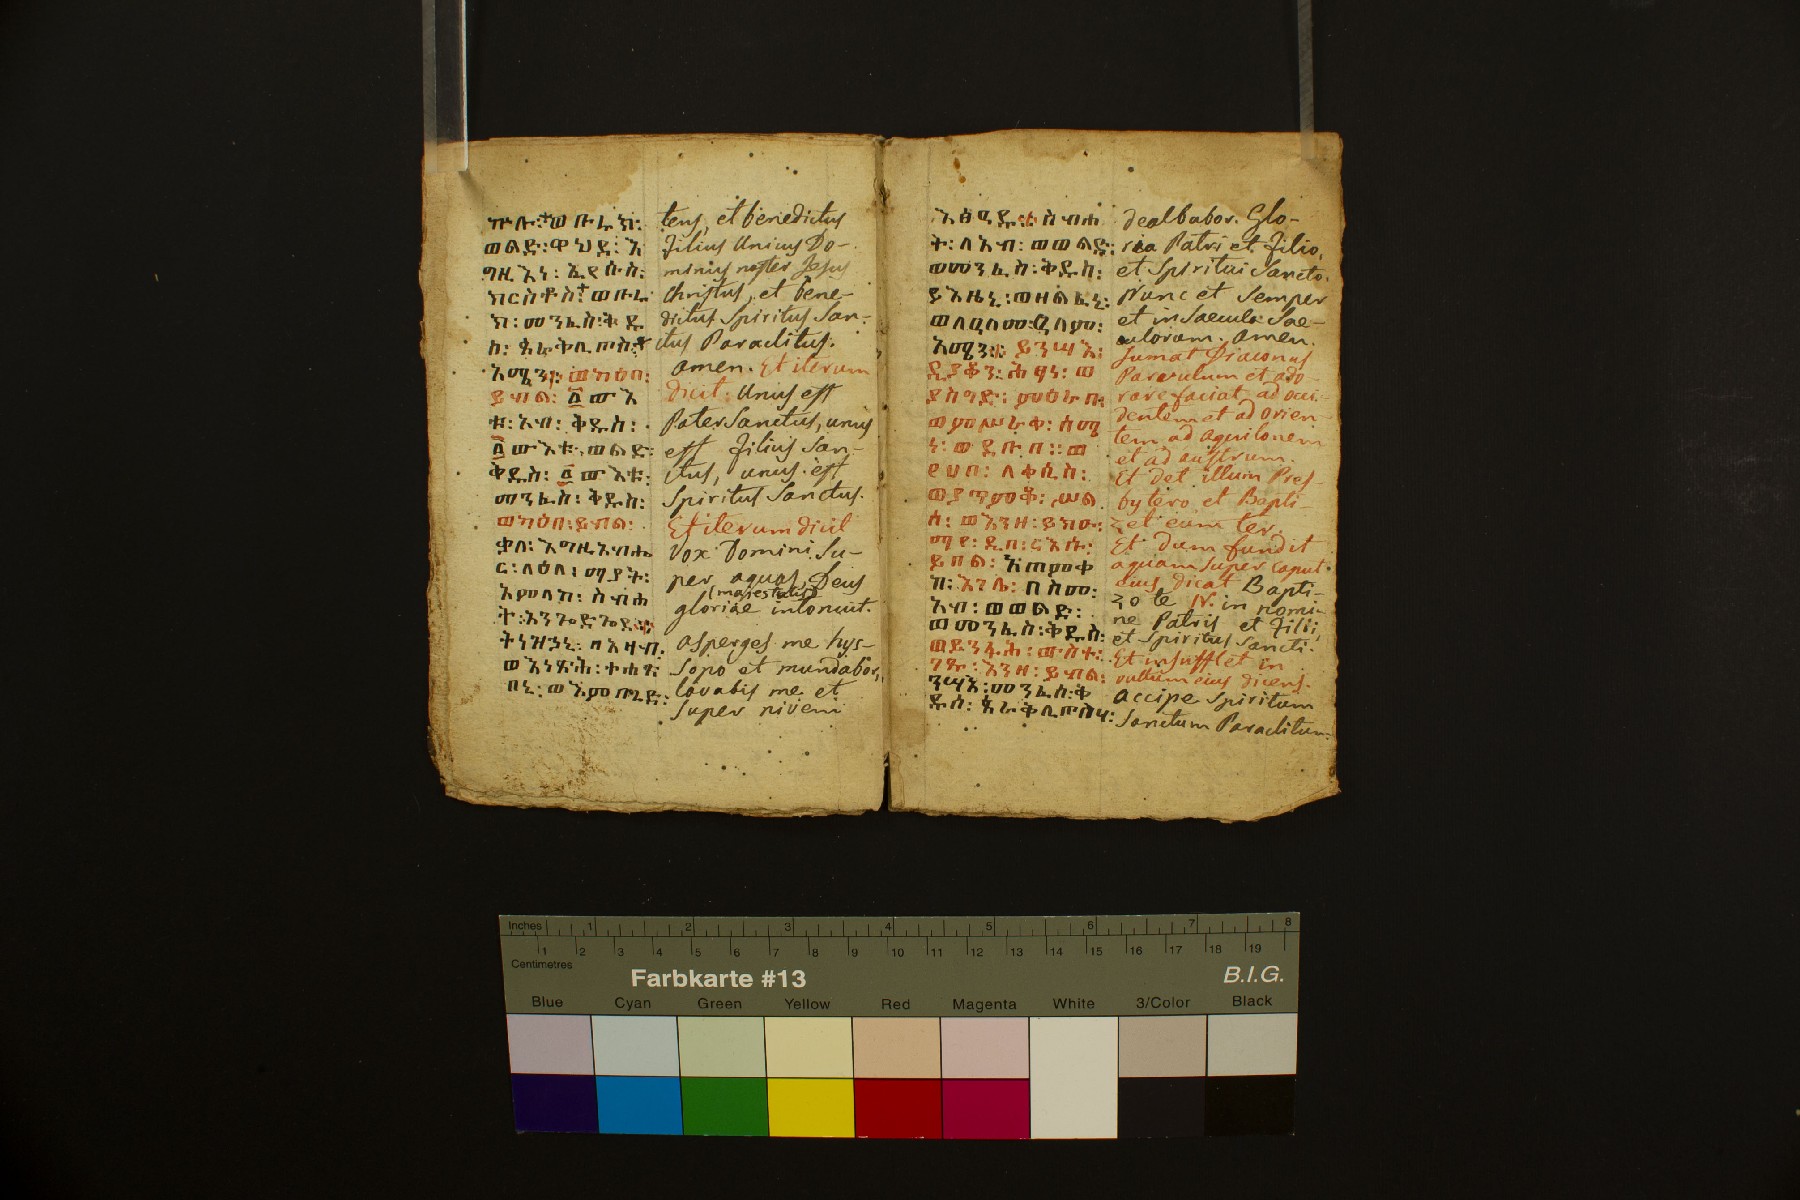 ኵሉ፡ ወቡሩክ፡
ወልድ፡ ዋህድ፡ እ
ግዚእነ፡ ኢየሱስ፡
ክርስቶስ፡ ወቡሩ
ክ፡ መንፈስ፡ ቅዱ
ስ፡ ጰራቅሊጦስ፡
አሜን፡ ወካዕበ፡
ይብል፡ ፩ ውእ
ቱ፡ አብ፡ ቅዱስ፡
፩ ውእቱ፡ ወልድ፡
ቅዱስ፡ ፩ ውእቱ፡
መንፈስ፡ ቅዱስ፡
ወካዕበ፡ ይብል፡
ቃለ፡ እግዚአብሔ
ር፡ ላዕለ፡ ማያት፡
አምላክ፡ ስብሐ
ት፡ አንጐድጐደ፡
ትነዝኃኒ፡ በአዛብ
ወእነጽሕ፡ ተሐፅ
በኒ፡ ወእምበረድ፡
tens, et benedictus
filius Unicus Do-
minus noster Jesus
Christus, et bene-
dictus Spiritus San-
ctus Paraclitus.
amen. Et iterum
dicit: Unus est
Pater Sanctus, unus
est Filius San-
ctus, unus est
Spiritus Sanctus.
Et iterum dicit
Vox Domini Su-
per aquas, Deus
(majestatis)
gloriae intonuit.
asperges me hys-
sopo et mundabor,
lavabis me et
super nivem
እፀዐዱ፡ ስብሐ
ት፡ ለአብ፡ ወወልድ፡
ወመንፈስ፡ ቅዱስ፡
ይእዜኒ፡ ወዘልፈኒ፡
ወለዓለመ፡ ዓለም፡
አሜን፡ ይንሣእ፡
ዲያቆን፡ ሕፃነ፡ ወ
ያስግድ፡ ምዕራበ፡
ወምሥራቀ፡ ሰሜ
ነ፡ ወደቡበ፡ ወ
የሀቦ፡ ለቀሲስ፡
ወያጥምቆ፡ ሥል
ሰ፡ ወእንዘ፡ ይክዑ፡
ማየ፡ ዲበ፡ ርእሱ፡
ይበል፡ አጠምቀ
ከ፡ እገሌ፡ በስመ፡
አብ፡ ወወልድ፡
ወመንፈስ፡ ቅዱስ፡
ወይንፋሕ፡ ውስተ፡
ገጹ፡ እንዘ፡ ይብል፡
ንሣእ፡ መንፈስ፡ ቅ
ዱሰ፡ ጰራቅሊጦስሃ፡
dealbabor. Glo-
ria Patri et Filio,
et Spiritui Sancto.
Nunc et Semper
et in Saecula Sae-
culorum. Amen.
Sumat Diaconus
Parvulum et ado-
rare faciat, ad occi-
dentem et ad orien-
tem ad aquilonem
et ad austrum.
Et det illum Pres-
bytero et Bapti-
zet eum ter.
Et dum fundit
aquam super caput
eius, dicat Bapti-
zo te N. in nomi-
ne Patris et Filii,
et Spiritus Sancti.
Et insufflet in
vultum eius dicens.
accipe Spiritum
Sanctum Paraclitum.
Inches 1 2 3 4 5 6 7 8
1 2 3 4 5 6 7 8 9 10 11 12 13 14 15 16 17 18 19
Centimetres
Farbkarte #13 B.I.G.
Blue Cyan Green Yellow Red Magenta White 3/Color Black